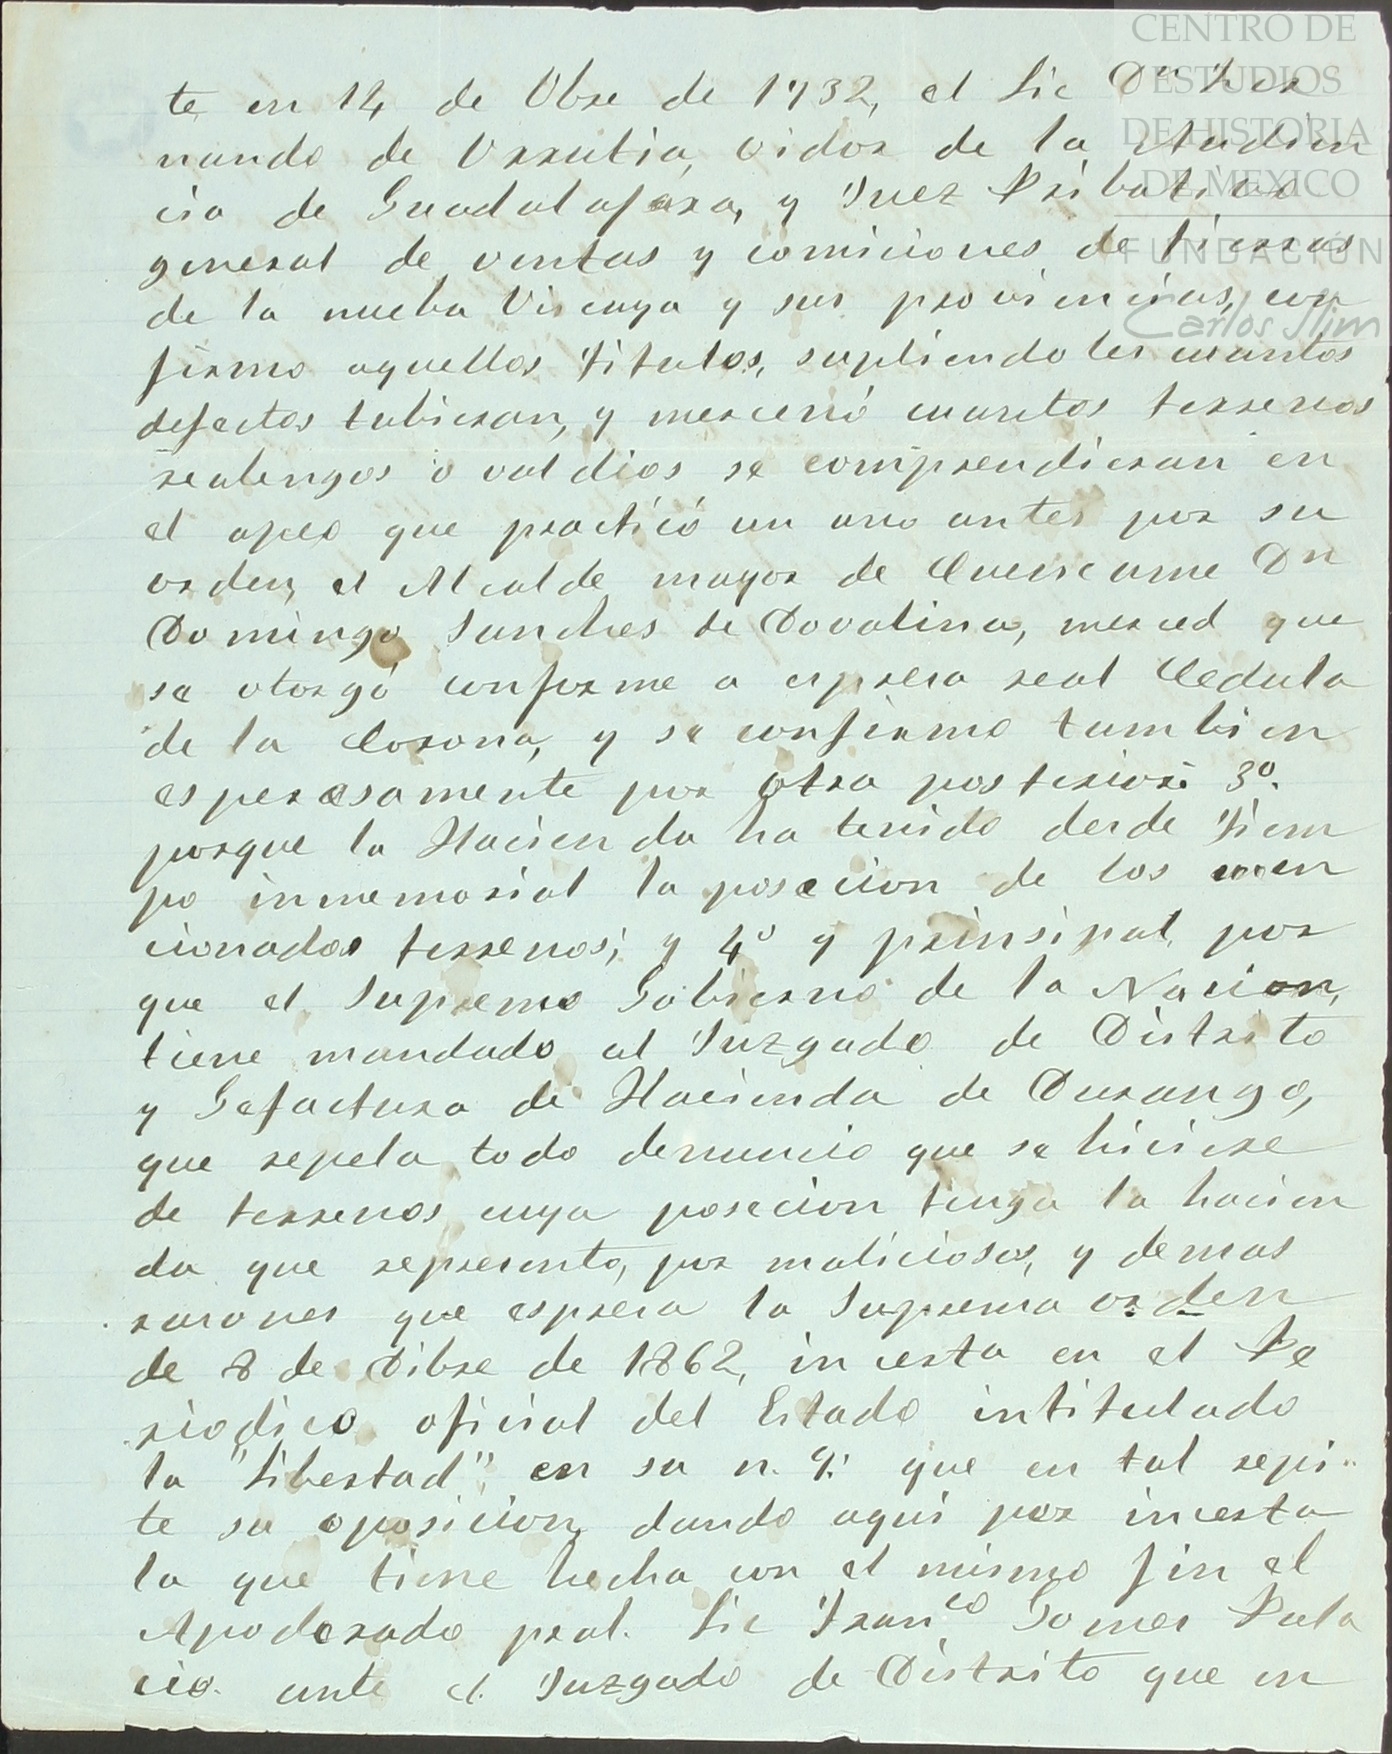 CENTRO DE
ESTUDIOS
DE HISTORIA
DE MÉXICO
FUNDACIÓN
Carlos Slim
te en 14 de Obre de 1732, el Lic Dn Fer
nando de Urrutia, oidor de la Audien
cia de Guadalajara, y Juez Pribatibo
general de ventas y comiciones de tierras
de la nueba Viscaya y sus provincias, con
firmo aquellos titulos, supliendoles cuantos
defectos tubieran, y mercenó cuantos terrenos
realengos o valdios se comprendieran en
el apeo que practicó un ano antes por su
orden, el Alcalde mayor de Cuencame Dn
Domingo Sanches de Dovalina, merced que
se otorgó conforme a espresa real Cedula
de la Corona, y se confirmo tambien
esperesamente por otra posterior: 3º.
porque la Hacienda ha tenido desde tiem
po inmemorial la posecion de los men
cionados terrenos; y 4º y prinsipal, por
que el Supremo Gobierno de la Nacion,
tiene mandado al Juzgado de Distrito
y Gefactura de Hacienda de Durango,
que repela todo denuncio que se hiciere
de terrenos cuya posecion tenga la hacien
da que represento, por maliciosos, y demas
rasones que espresa la Suprema orden
de 8 de Dibre de 1862, incerta en el Pe
riodico oficial del Estado intitulado
la "Libertad" en su n. 9: que en tal repi-
te su oposicion, dando aqui por incerta
la que tiene hecha con el mismo fin el
Apoderado pral. Lic Franco Gomes Pala
cio. ante el Juzgado de Distrito que en